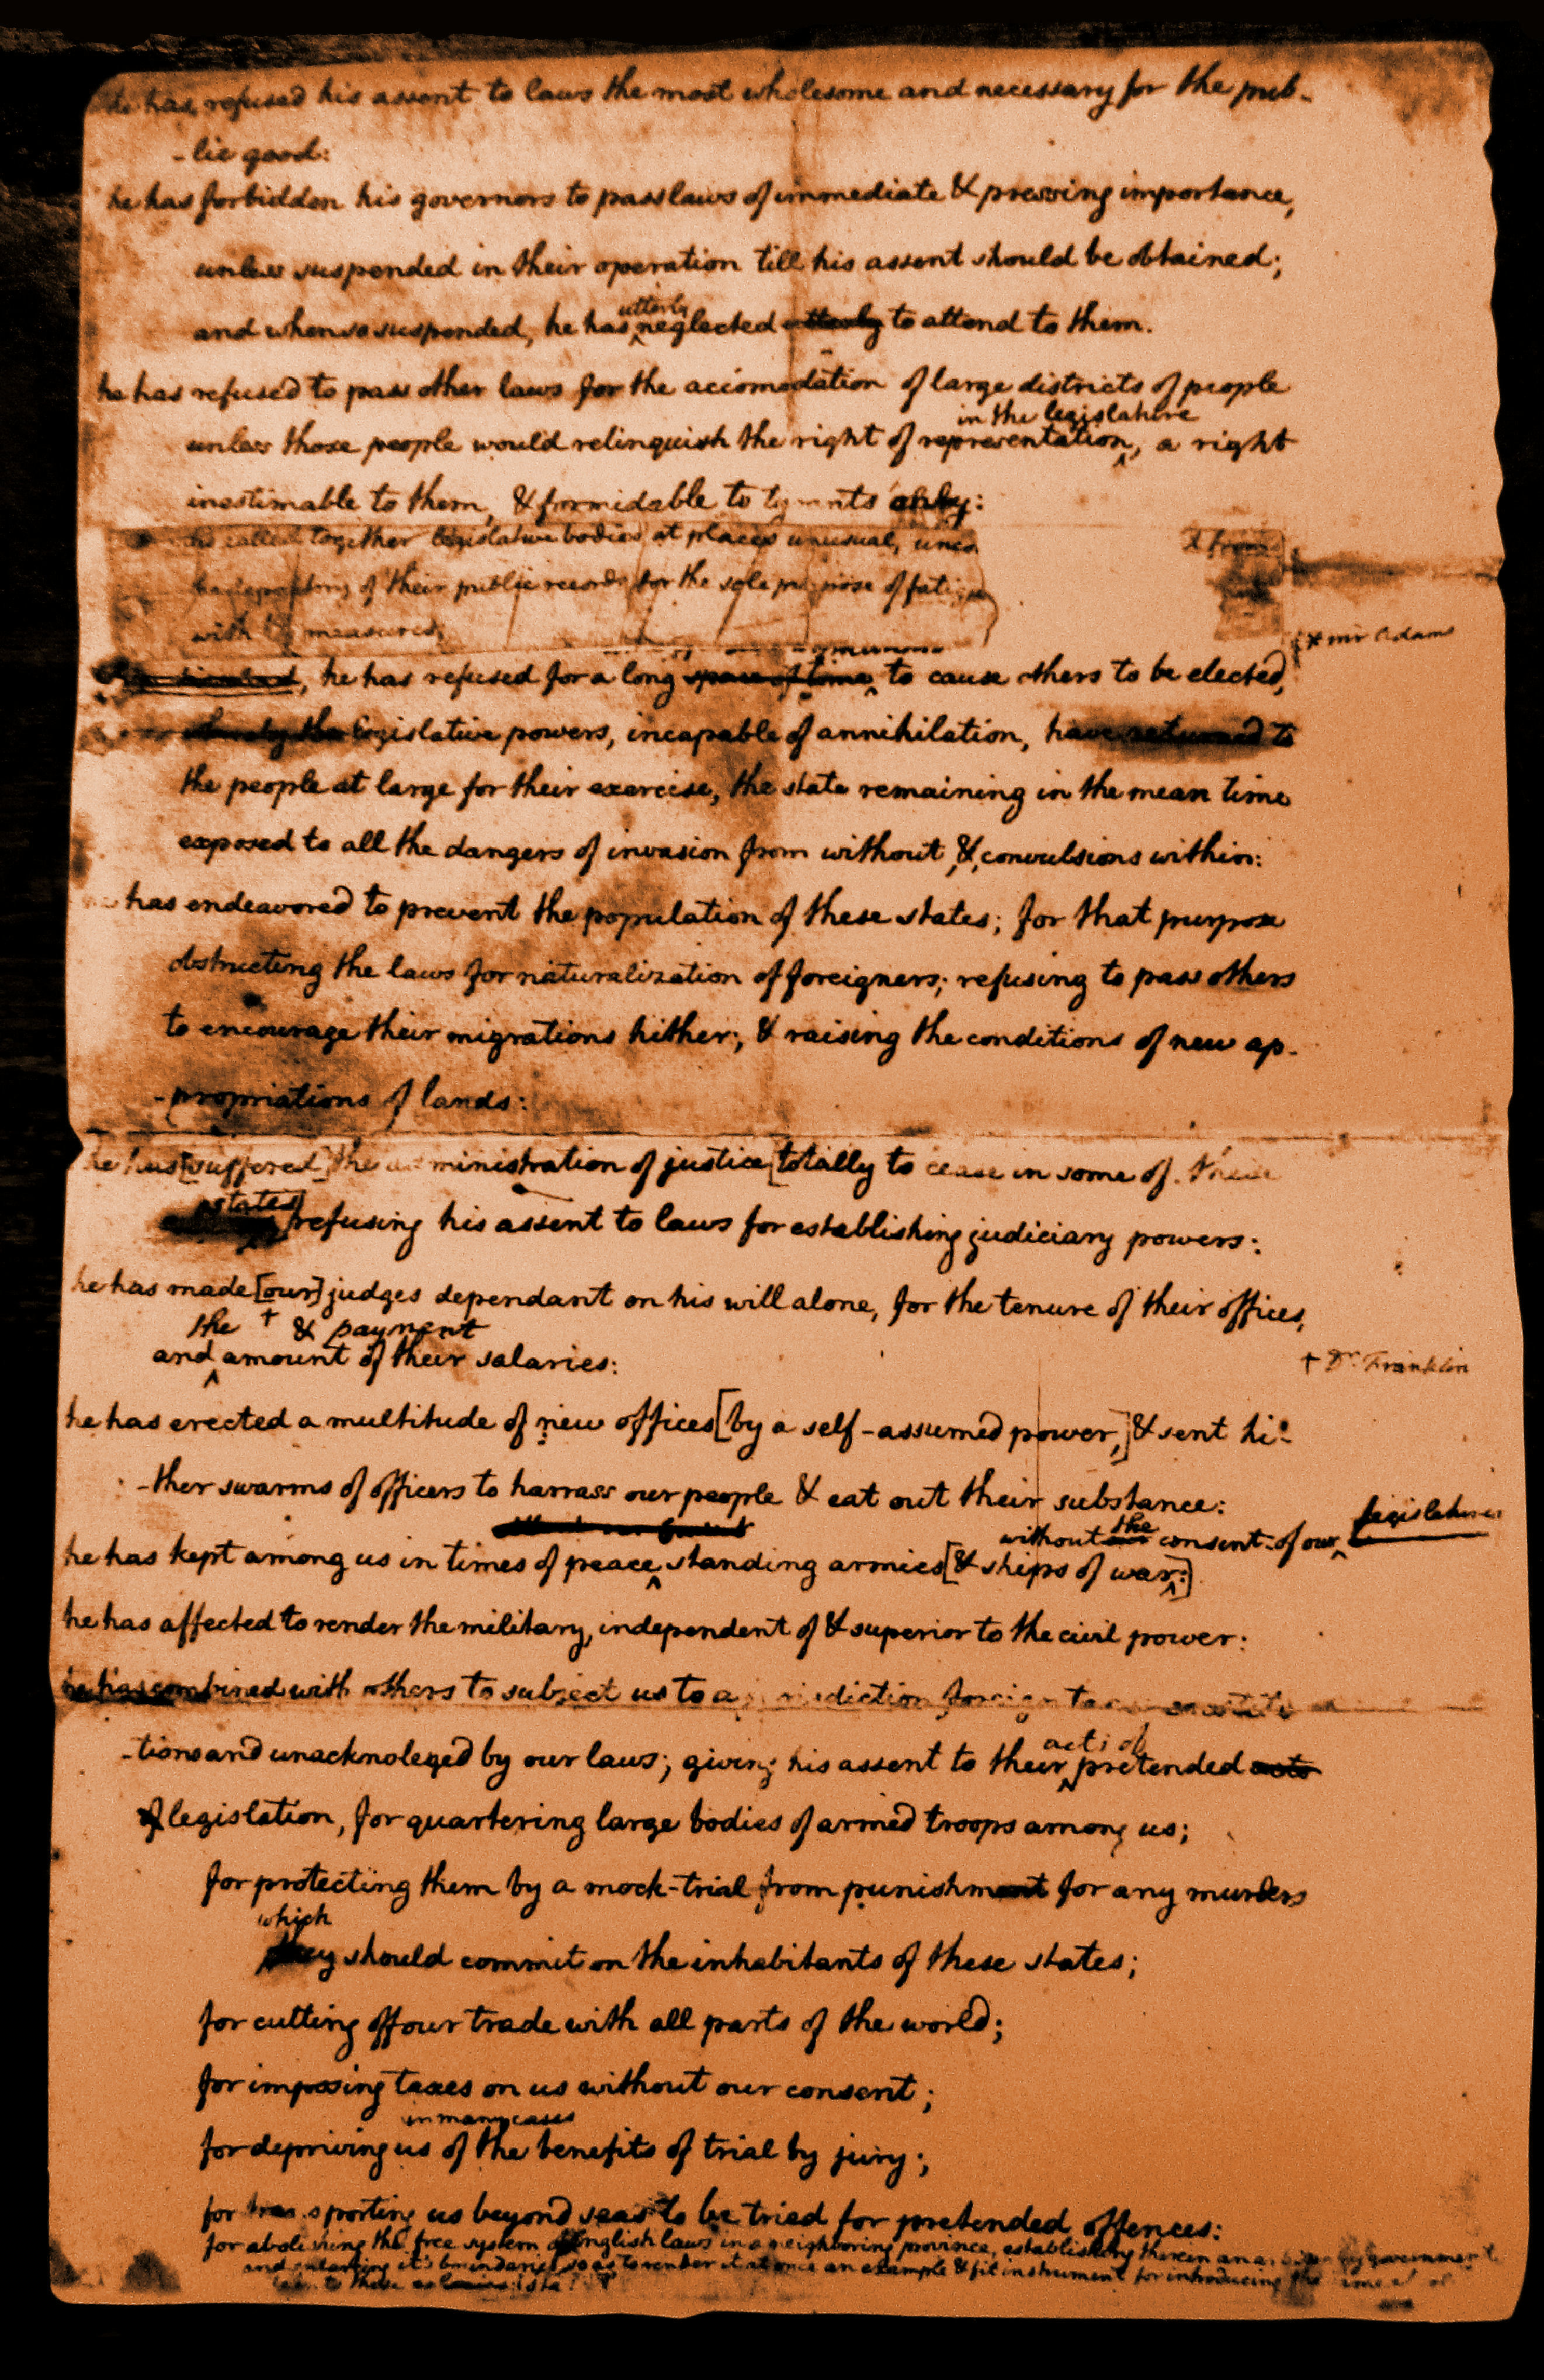 he has refused his assent to laws the most wholesome and necessary for the pub-
-lic good:
he has forbidden his governors to pass laws of immediate & pressing importance,
unless suspended in their operation till his assent should be obtained;
utterly
and when so suspended, he has neglected utterly to attend to them.
he has refused to pass other laws for the accomodation of large districts of people
in the legislature
unless those people would relinquish the right of representation, a right
inestimable to them, & formidable to tyrants only:
called together legislative bodies at places unusual,
of their public records for the sole purpose of
with measures;
* mr Adams
he has refused for a long space of time to cause others to be elected,
whereby the legislative powers, incapable of annihilation, have returned to
the people at large for their exercise, the state remaining in the mean time
exposed to all the dangers of invasion from without, & convulsions within:
has endeavored to prevent the population of these states; for that purpose
obstructing the laws for naturalization of foreigners; refusing to pass others
to encourage their migrations hither; & raising the conditions of new ap-
-propriations of lands:
he has [suffered] the administration of justice [totally to cease in some of these
states] refusing his assent to laws for establishing judiciary powers:
he has made [our] judges dependant on his will alone, for the tenure of their offices,
the † & payment
and amount of their salaries:
† Dr. Franklin
he has erected a multitude of new offices [by a self-assumed power,] & sent hi-
-ther swarms of officers to harrass our people & eat out their substance:
without our the consent of our legislatures
he has kept among us in times of peace standing armies [& ships of war:]
he has affected to render the military, independent of & superior to the civil power:
he has combined with others to subject us to a jurisdiction foreign to
-tions and unacknoleged by our laws; giving his assent to their pretended acts
acts of
of legislation, for quartering large bodies of armed troops among us;
for protecting them by a mock-trial from punishment for any murders
which
they should commit on the inhabitants of these states;
for cutting off our trade with all parts of the world;
for imposing taxes on us without our consent;
in many cases
for depriving us of the benefits of trial by jury;
for transporting us beyond seas to be tried for pretended offences:
for abolishing the free system of English laws in a neighboring province, establishing therein an government
and enlarging it's boundaries so as to render it at once an example & fit instrument for introducing the
to these